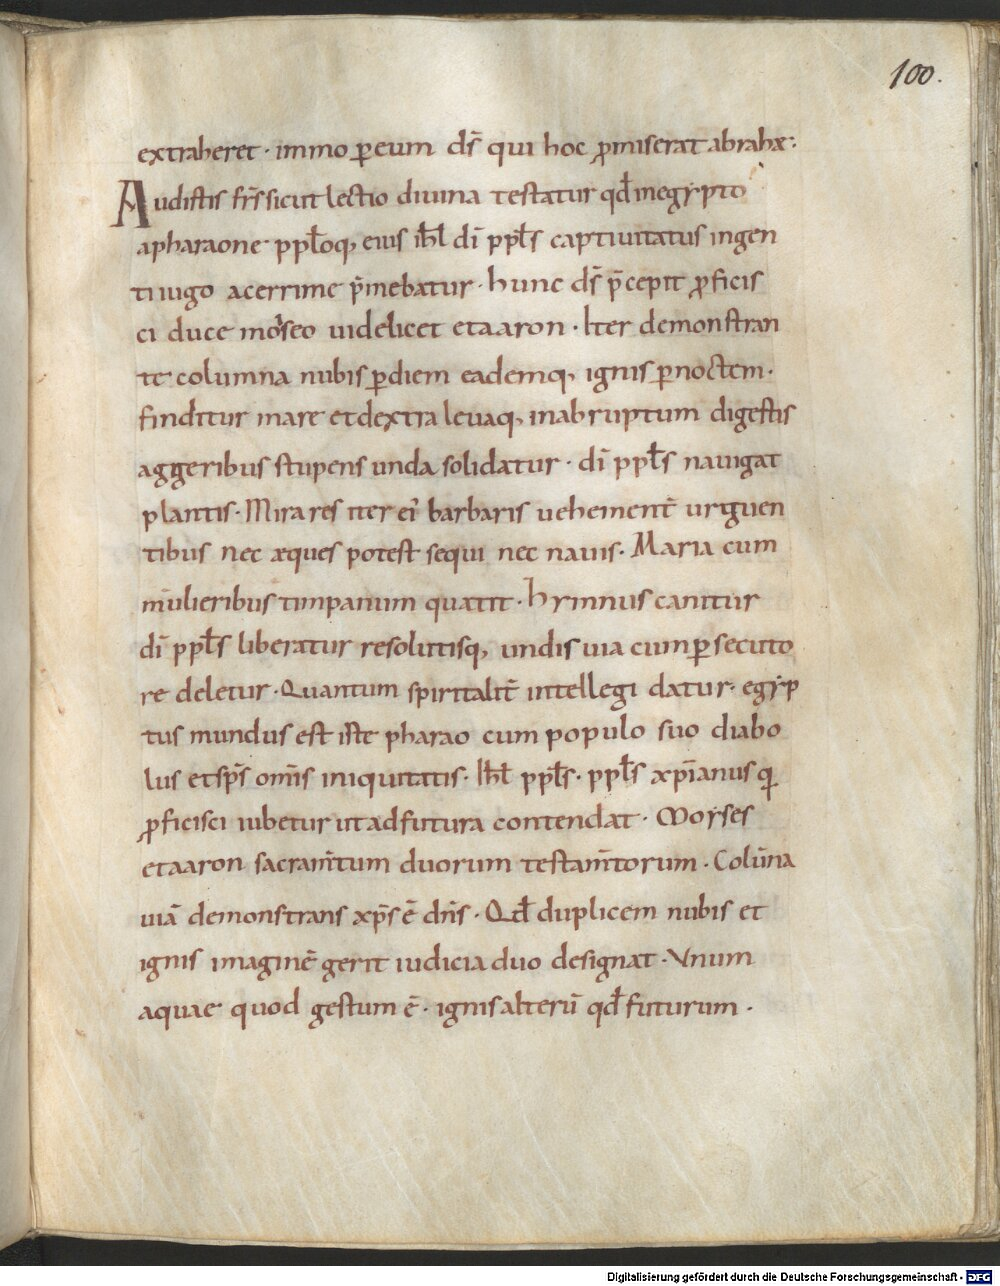 100.
extraheret · immo ꝑeum ds̄ qui hoc ꝓmiserat abrahæ:
Audistis fr̄s sicut lectio diuina testatur qđ inegẏpto
apharaone ppl̄oq, eius ihl̄ dī ppl̄s captiuitatus ingen
ti iugo acerrime p̄mebatur · hunc ds̄ p̄cepit ꝓficis
ci duce moẏseo uidelicet etaaron · Iter demonstran
te columna nubis ꝑdiem eademq, ignis ꝑnoctem ·
finditur mare etdextra leuaq, inabruptum digestis
aggeribus stupens unda solidatur · dī ppl̄s nauigat
plantis · Mira res iter ei barbaris uehement̄ urguen
tibus nec æques potest sequi nec nauis · Maria cum
mulieribus timpanum quatit · hẏmnus canitur
dī ppl̄s liberatur resolutisq, undis uia cumꝑsecuto
re deletur · Quantum spiritalit̄ intellegi datur · egẏp
tus mundus est iste pharao cum populo suo diabo
lus etsp̄s omīs iniquitatis · Ihl̄ ppl̄s · ppl̄s xp̄ianus q
ꝓficisci iubetur utadfutura contendat · Moẏses
etaaron sacram̄tum duorum testam̄torum · Colūna
uiā demonstrans xp̄s ē dn̄s · Qđ duplicem nubis et
ignis imaginē gerit iudicia duo designat · Vnum
aquae quod gestum ē · ignis alterū qđ futurum ·
Digitalisierung gefördert durch die Deutsche Forschungsgemeinschaft - DFG